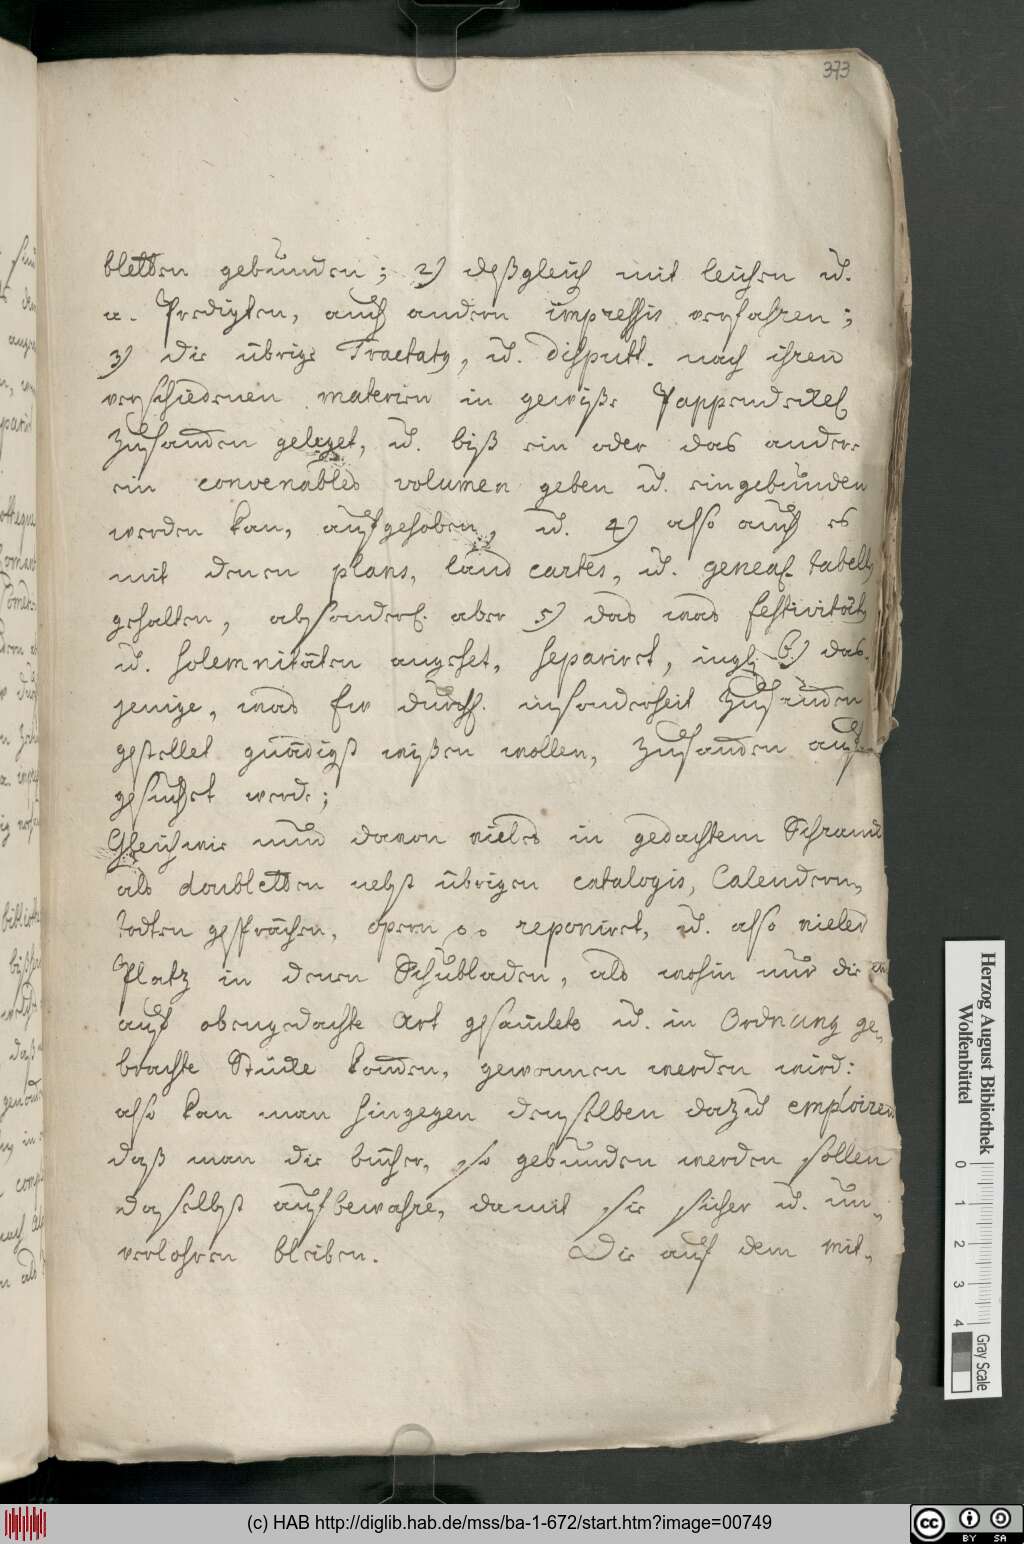 373
bletten gebunden; 2) deßgleich mit leichen u.
a. Predigten, auch andern impressis verfahren;
3) die übrige Tractaty, u. disputt. nach ihren
verschiedenen materien in gewiße Pappendeckel
zusamen geleget, u. biß ein oder das andere
ein convenables volumen geben u. eingebunden
werden kan, aufgehoben, u. 4) also auch es
mit denen plans, land cartes, u. geneal. tabell
gehalten, absonderl. aber 5) das was festivität
u. solemnitäten angehet, separiret, ingl. 6.) das-
jenige, was Ew. durchl. insonderheit zusamen
gestellet gnädigst wißen wollen, zusamen auf-
gesuchet werde;
Gleichwie nun davon vieles in gedachtem Schranck
als doubletten nebst übrigen catalogis, Calendern,
todten gesprächen, opern reponiret, u. also vieler
Platz in denen Schubladen, als wohin nur die
auf obengedachte Art gesamlete u. in Ordnung ge-
brachte Stücke komen, gewonnen werden wird:
also kan man hingegen denselben dazu emploiren
daß man die bücher, so gebunden werden sollen
daselbst aufbewahre, damit sie sicher u. un-
verlohren bleiben. Die auf dem mit-
Herzog August Bibliothek
Wolfenbüttel
0 1 2 3 4
Gray Scale
(c) HAB http://diglib.hab.de/mss/ba-1-672/start.htm?image=00749
cc BY SA